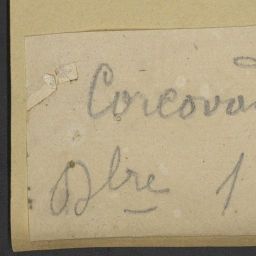 Corcova
8bre 1